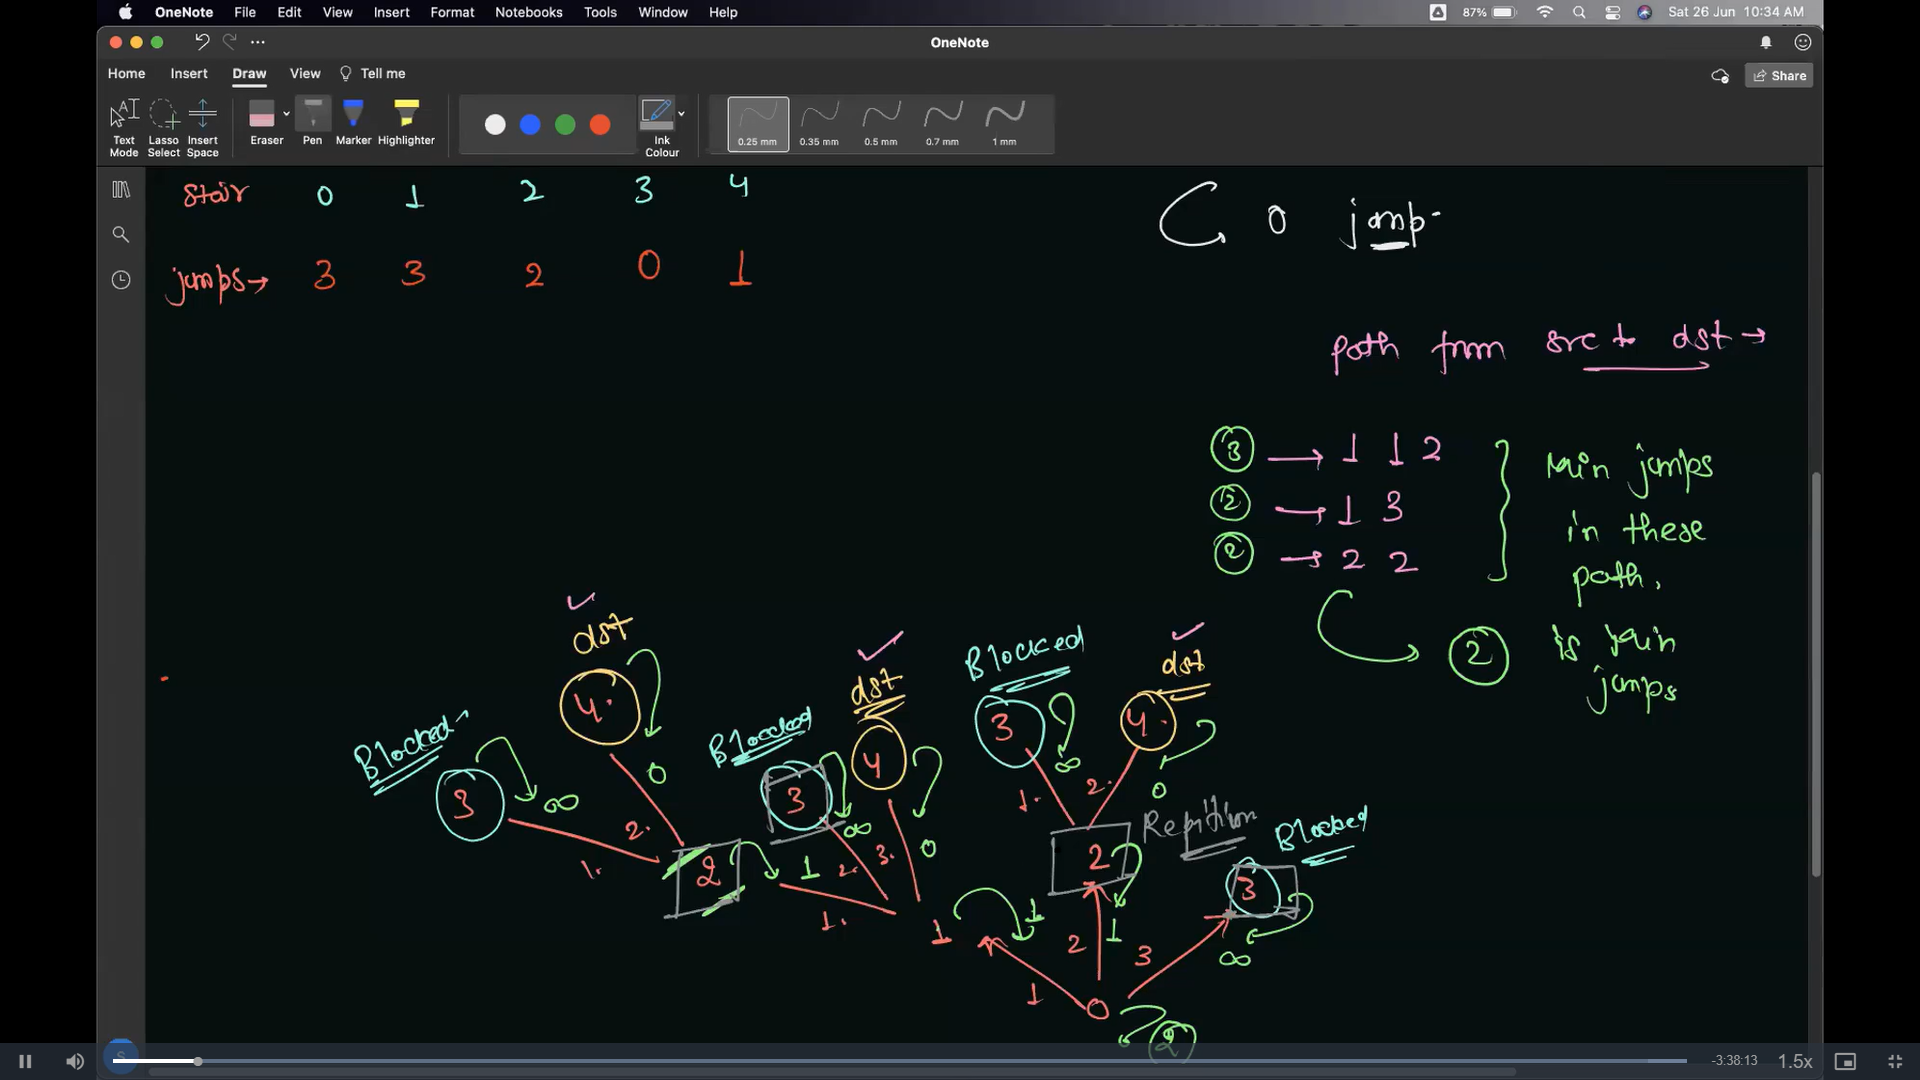 OneNote File Edit View Insert Format Notebooks Tools Window Help 87% Sat 26 Jun 10:34 AM
OneNote
Home Insert Draw View Tell me Share
Text Mode Lasso Select Insert Space Eraser Pen Marker Highlighter Ink Colour 0.25 mm 0.35 mm 0.5 mm 0.7 mm 1 mm
Stair 0 1 2 3 4
0 jmp
jumps → 3 3 2 0 1
path from src to dst →
3 → 1 1 2
2 → 1 3
2 → 2 2
Min jumps
in these
path.
2 is Min
jumps
dst
dst
Blocked
dst
4
0
Blocked
3
∞
Blocked
3
∞
4
0
3
∞
4
0
1.
2.
Repitition
Blocked
1.
2.
2
1
2.
3.
2
1
3
∞
1.
1
1
2
3
1
0
2
-3:38:13 1.5x